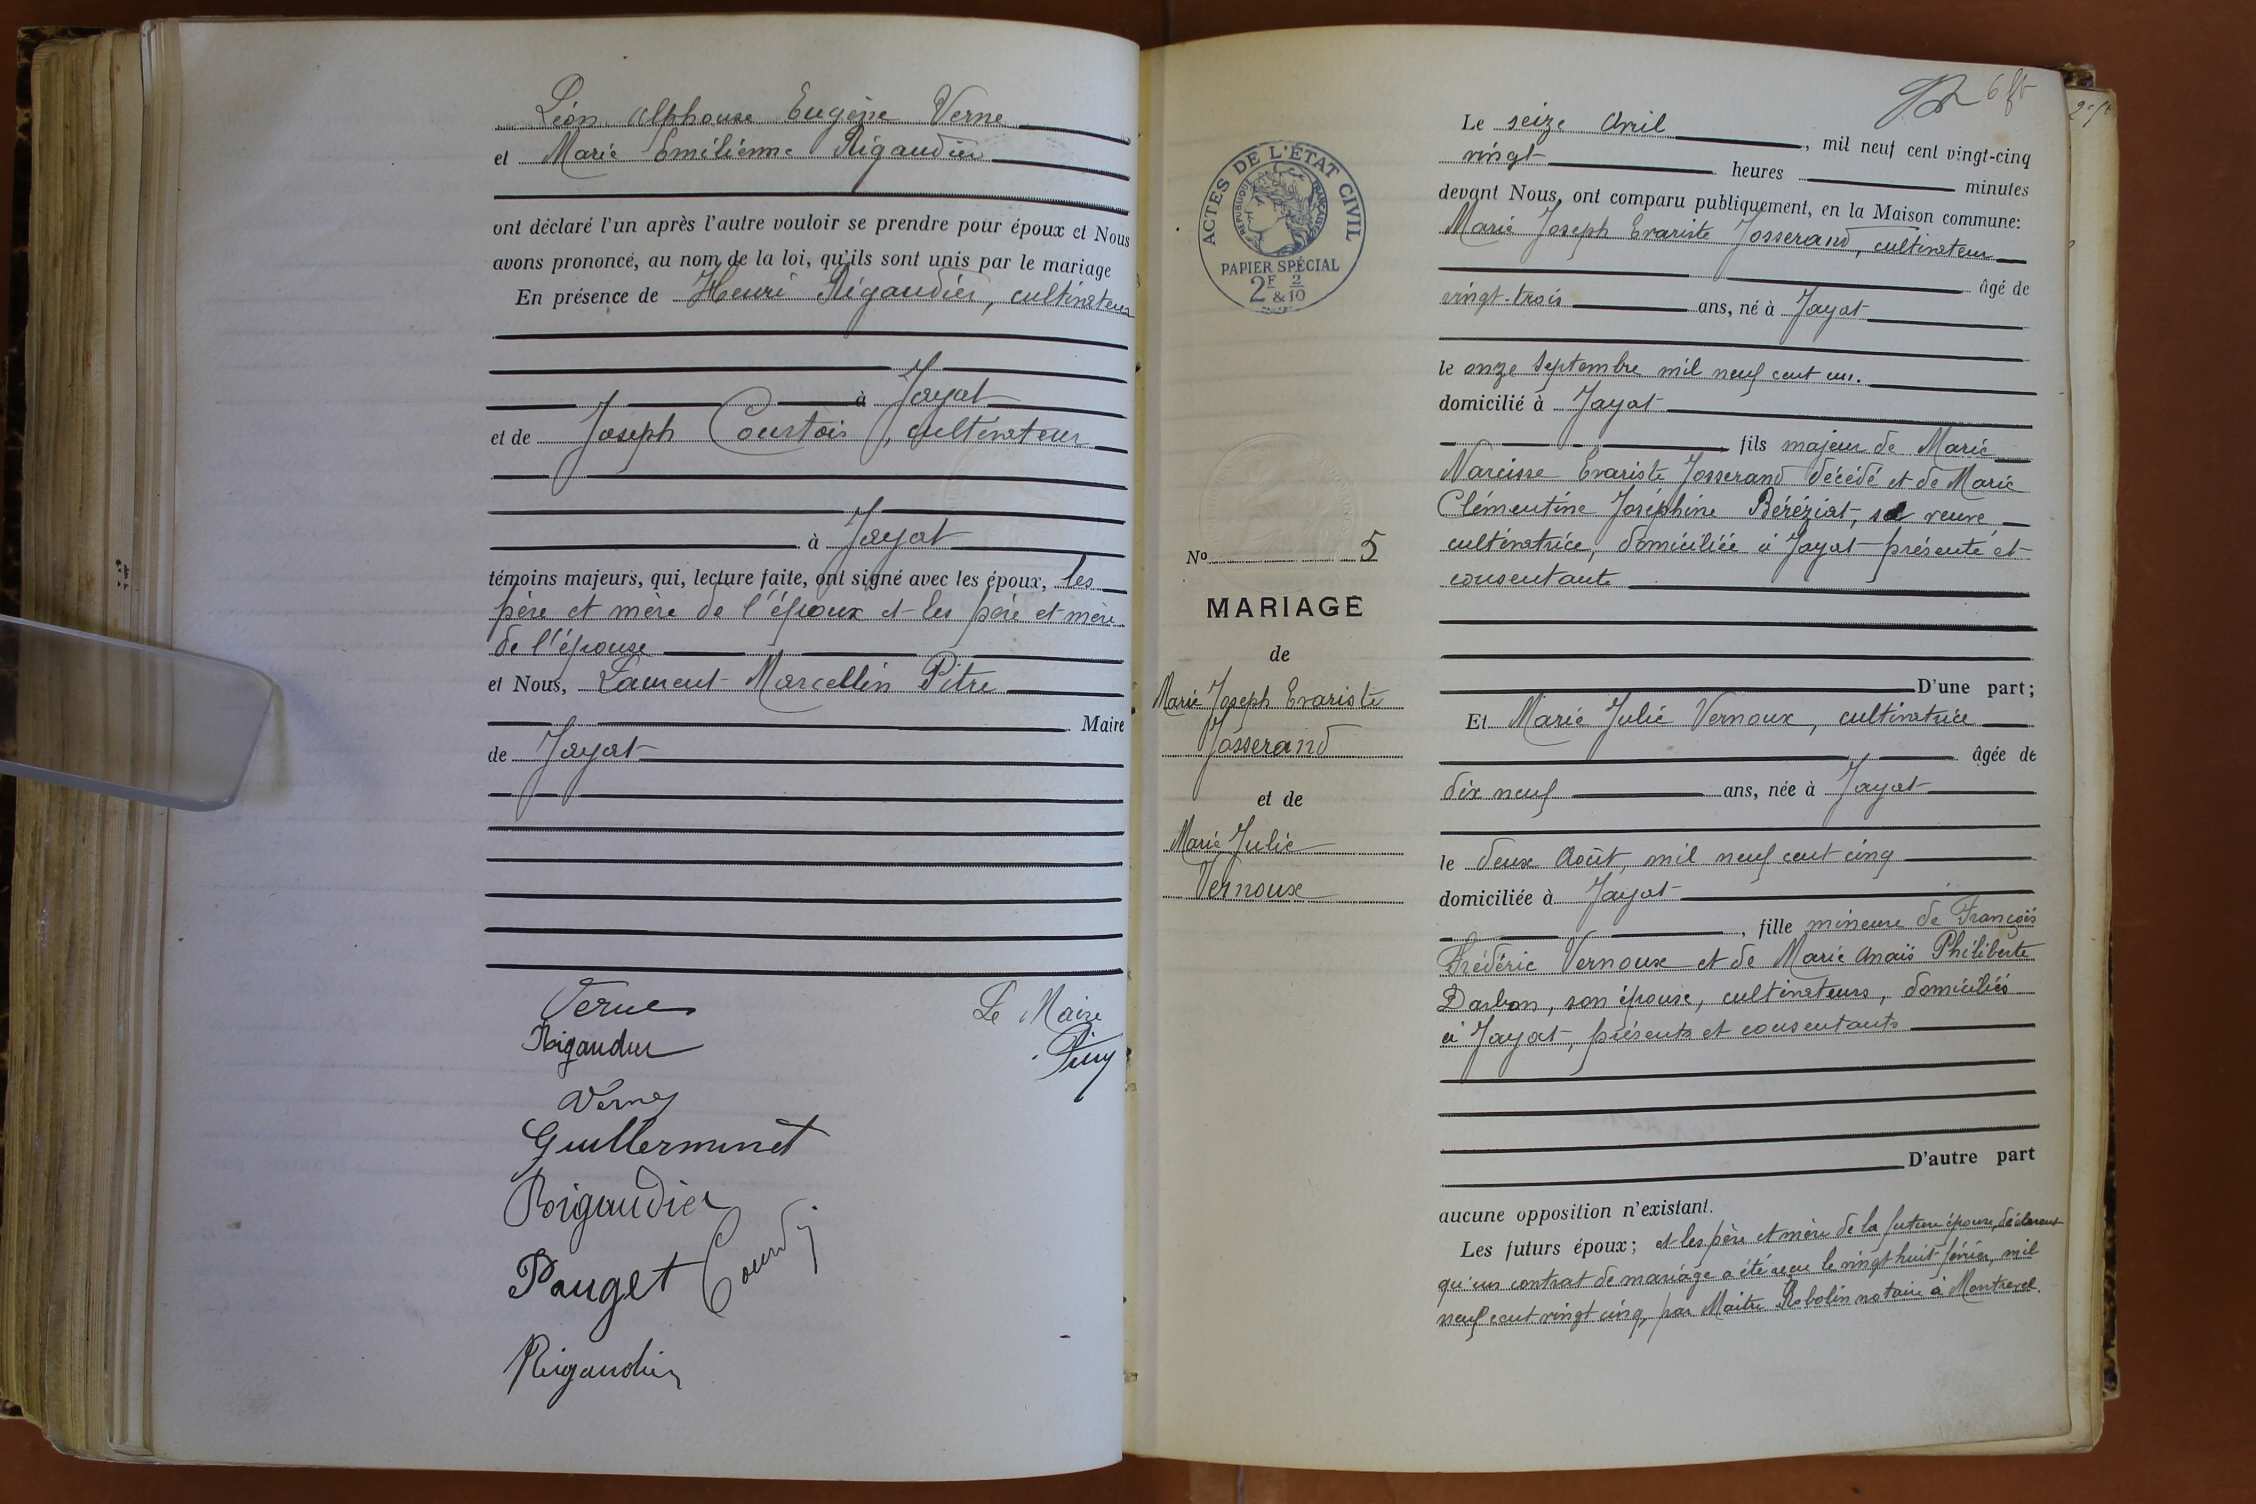 Léon Alphonse Eugène Verne
et Marie Emilienne Rigaudier
ont déclaré l'un après l'autre vouloir se prendre pour époux et Nous
avons prononcé, au nom de la loi, qu'ils sont unis par le mariage
En présence de Henri Rigaudier, cultivateur
à Jayat
et de Joseph Courtois, cultivateur
à Jayat
témoins majeurs, qui, lecture faite, ont signé avec les époux, les
père et mère de l'époux et les père et mère
de l'épouse
et Nous, Laurent Marcellin Pitre
Maire
de Jayat
Verne
Le Maire
Rigaudier
Verne
Guillerminet
Rigaudier
Pauget
Rigaudier
6 ft
ACTES DE L'ÉTAT CIVIL
RÉPUBLIQUE FRANÇAISE
PAPIER SPÉCIAL
2F & 2/10
No 5
MARIAGE
de
Marie Joseph Evariste
Josserand
et de
Marie Julie
Vernoux
Le seize Avril, mil neuf cent vingt-cinq
vingt heures minutes
devant Nous, ont comparu publiquement, en la Maison commune:
Marie Joseph Evariste Josserand, cultivateur
âgé de
vingt-trois ans, né à Jayat
le onze Septembre mil neuf cent un.
domicilié à Jayat
fils majeur de Marie
Narcisse Evariste Josserand décédé et de Marie
Clémentine Joséphine Béréziat, sa veuve
cultivatrice, domiciliée à Jayat présente et
consentante
D'une part;
Et Marie Julie Vernoux, cultivatrice
âgée de
dix neuf ans, née à Jayat
le deux Août, mil neuf cent cinq
domiciliée à Jayat
, fille mineure de François
Frédéric Vernoux et de Marie Anaïs Philiberte
Darbon, son épouse, cultivateurs, domiciliés
à Jayat, présents et consentants
D'autre part
aucune opposition n'existant.
Les futurs époux; et les père et mère de la future épouse, déclarent
qu'un contrat de mariage a été reçu le vingt huit février, mil
neuf cent vingt cinq, par Maître Robolin notaire à Montrevel.